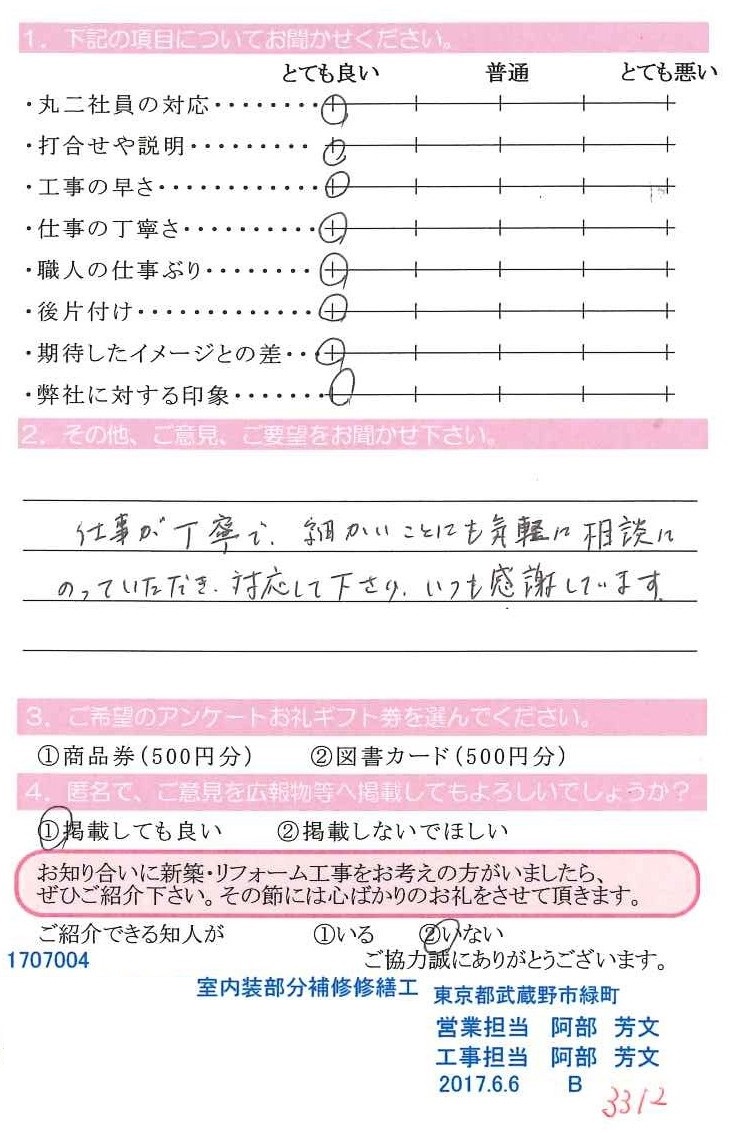 1. 下記の項目についてお聞かせください。
とても良い 普通 とても悪い
・丸二社員の対応········
・打合せや説明·········
・工事の早さ············
・仕事の丁寧さ··········
・職人の仕事ぶり········
・後片付け·············
・期待したイメージとの差···
・弊社に対する印象·······
2. その他、ご意見、ご要望をお聞かせ下さい。
仕事が丁寧で、細かいことにも気軽に相談に
のっていただき、対応して下さり、いつも感謝しています。
3. ご希望のアンケートお礼ギフト券を選んでください。
①商品券(500円分) ②図書カード(500円分)
4. 匿名で、ご意見を広報物等へ掲載してもよろしいでしょうか?
①掲載しても良い ②掲載しないでほしい
お知り合いに新築・リフォーム工事をお考えの方がいましたら、
ぜひご紹介下さい。その節には心ばかりのお礼をさせて頂きます。
ご紹介できる知人が ①いる ②いない
1707004 ご協力誠にありがとうございます。
室内装部分補修修繕工 東京都武蔵野市緑町
営業担当 阿部 芳文
工事担当 阿部 芳文
2017.6.6 B
3312